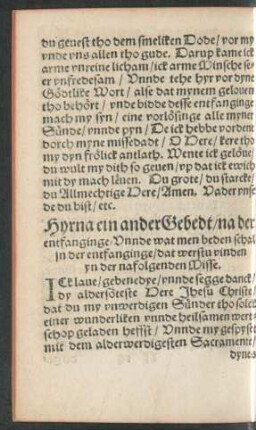 du geuest tho dem smeliken Dode / vor my
vnde vns allen tho gude. Darup kame ick
arme vnreine licham / ick arme Minsche se-
er vnfredesam / Vnnde tehe hyr vor dyne
Gödtlike Wort / alse dat mynem gelouen
tho behört / vnde bidde desse entfanginge
mach my syn / eine vorlösinge alle myner
Sünde / vnnde pyn / De ick hebbe vordent
dorch myne missedadt / O Here / kere tho
my dyn frölick antlath. Wente ick gelöue /
du wult my dith so geuen / vp dat ick ewich
mit dy mach leuen. Du grote / du starcke /
du Allmechtige Here / Amen. Vader vnse
de du bist / etc.
Hyrna ein ander Gebedt / na der
entfanginge Vnnde wat men beden schal
jn der entfanginge / dat werstu vinden
yn der nafolgenden Misse.
ICk laue / gebenedye / vnnde segge danck /
dy aldersöteste Here Jhesu Christe /
dat du my vnwerdigen Sünder tho solck
einer wunderliken vnnde heilsamen wert-
schop geladen heffst / Vnnde my gespyset
mit dem alderwerdigesten Sacramente /
dynes